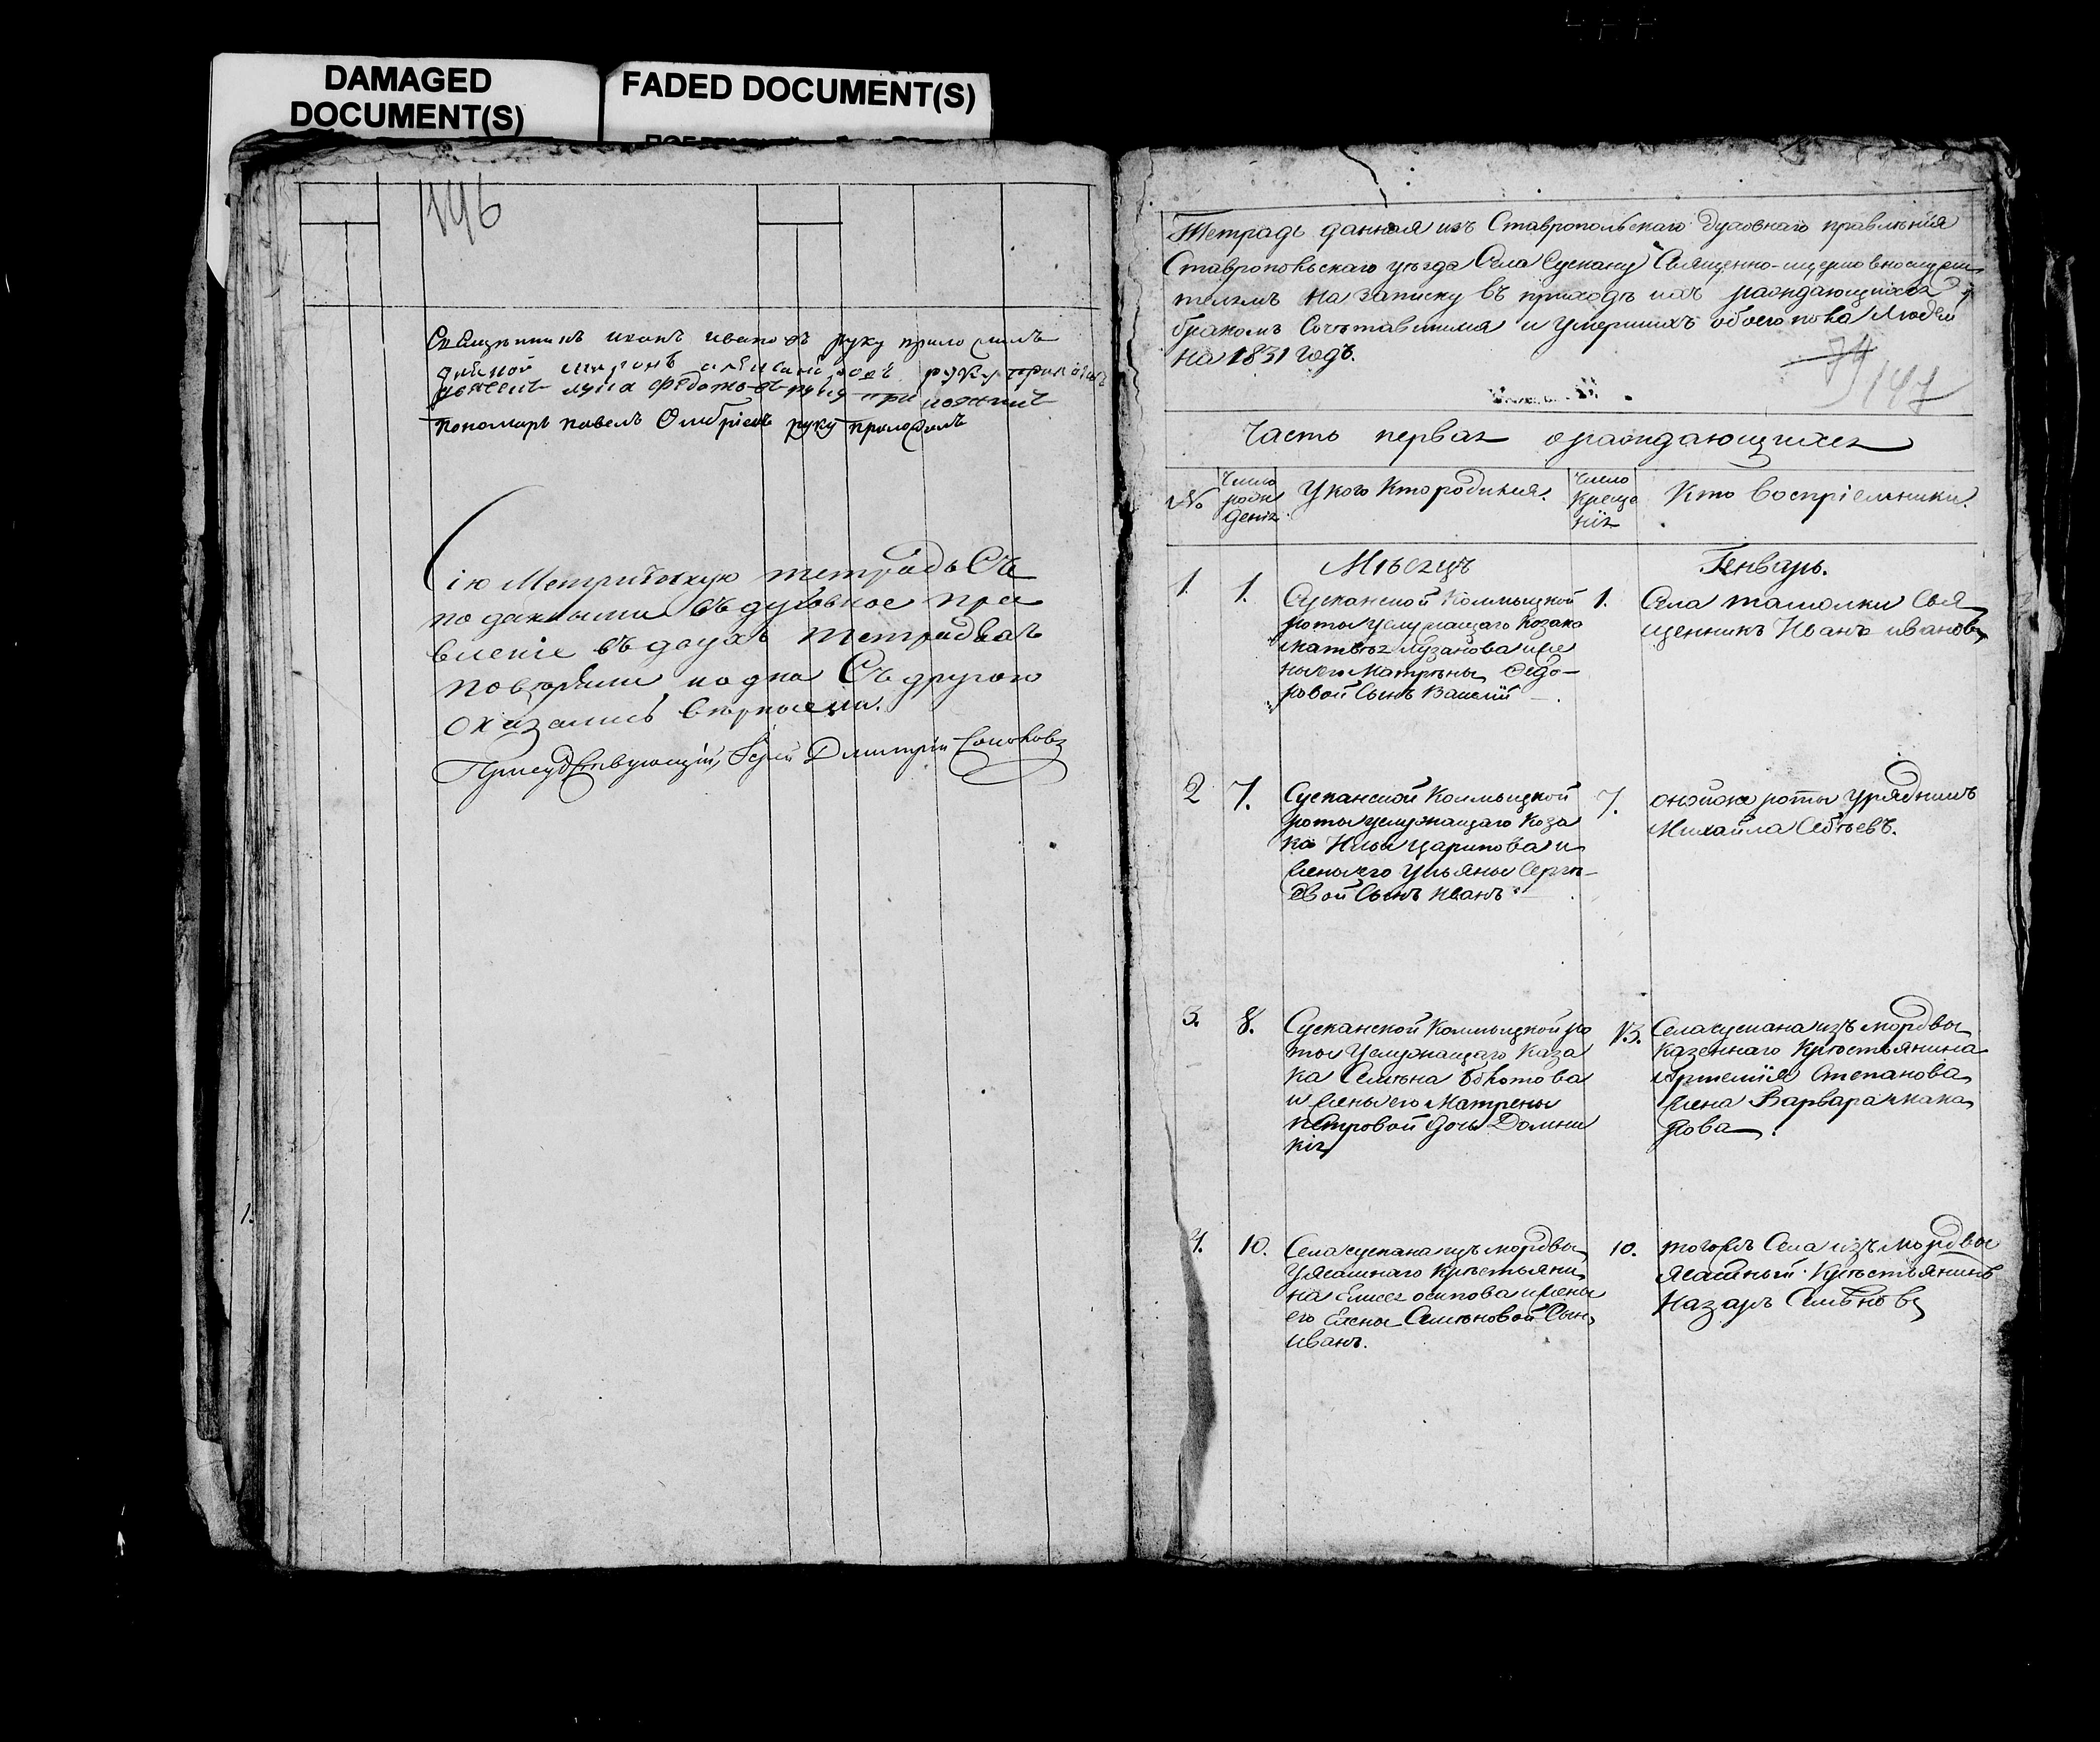 DAMAGED
DOCUMENT(S)
FADED DOCUMENT(S)
146
Священникъ иванъ ивановъ руку приложилъ
руку
дьячекъ лука федотовъ руку приложилъ
пономарь павелъ руку приложилъ
Сію Метрическую тетрадь Съ
поданными въ духовное пра
вленіе въ двухъ тетрадяхъ
повѣряли и одна Съ другою
оказались вѣрными.
Присудствующій, Іерей Димитрій Соколовъ
Тетрадь данная изъ Ставропольскаго духовнаго правленія
Ставропольскаго уѣзда Села Сускану Священно-церковнослужи
телямъ на записку въ приходѣ ихъ раждающихся
бракомъ Сочѣтавшимя и умершихъ обоего пола людей
на 1831 годъ.
79
147
Часть первая о раждающихся
№
Число
рож
денія.
У кого Кто родился.
Число
Креще
нія
Кто Воспріемники.
Мѣсяцъ
Генварь.
1.
1.
Сусканской Колмыцкой
роты услужащаго Козака
Матвѣя Лузанова и же
ны его Матрѣны Федо-
ровой Сынъ Василій
1.
Села ташолки Свя
щенникъ Иванъ ивановъ
2
7.
Сусканской Колмыцкой
роты услужащаго Коза
ка Ильи Царипова и
жены его Ульяны Сергѣ-
евой Сынъ Иванъ
7.
оной же роты урядникъ
Михайла
3.
8.
Сусканской Колмыцкой ро
ты Услужащаго Каза
ка Семѣна Болотова
и жены его Матрены
Петровой дочь Домни
кія
13.
Села сускана изъ мордвы
казеннаго Крѣстьянина
Артемія Степанова
жена Варвара макa
рова
4.
10.
Села сускана изъ мордвы
Уясашнаго крѣстьяни
на Елисея осипова и жены
его Елены Семѣновой Сынъ
иванъ.
10.
тогожъ Села изъ мордвы
Ясашный Крѣстьянинъ
Назаръ Семѣновъ
1.